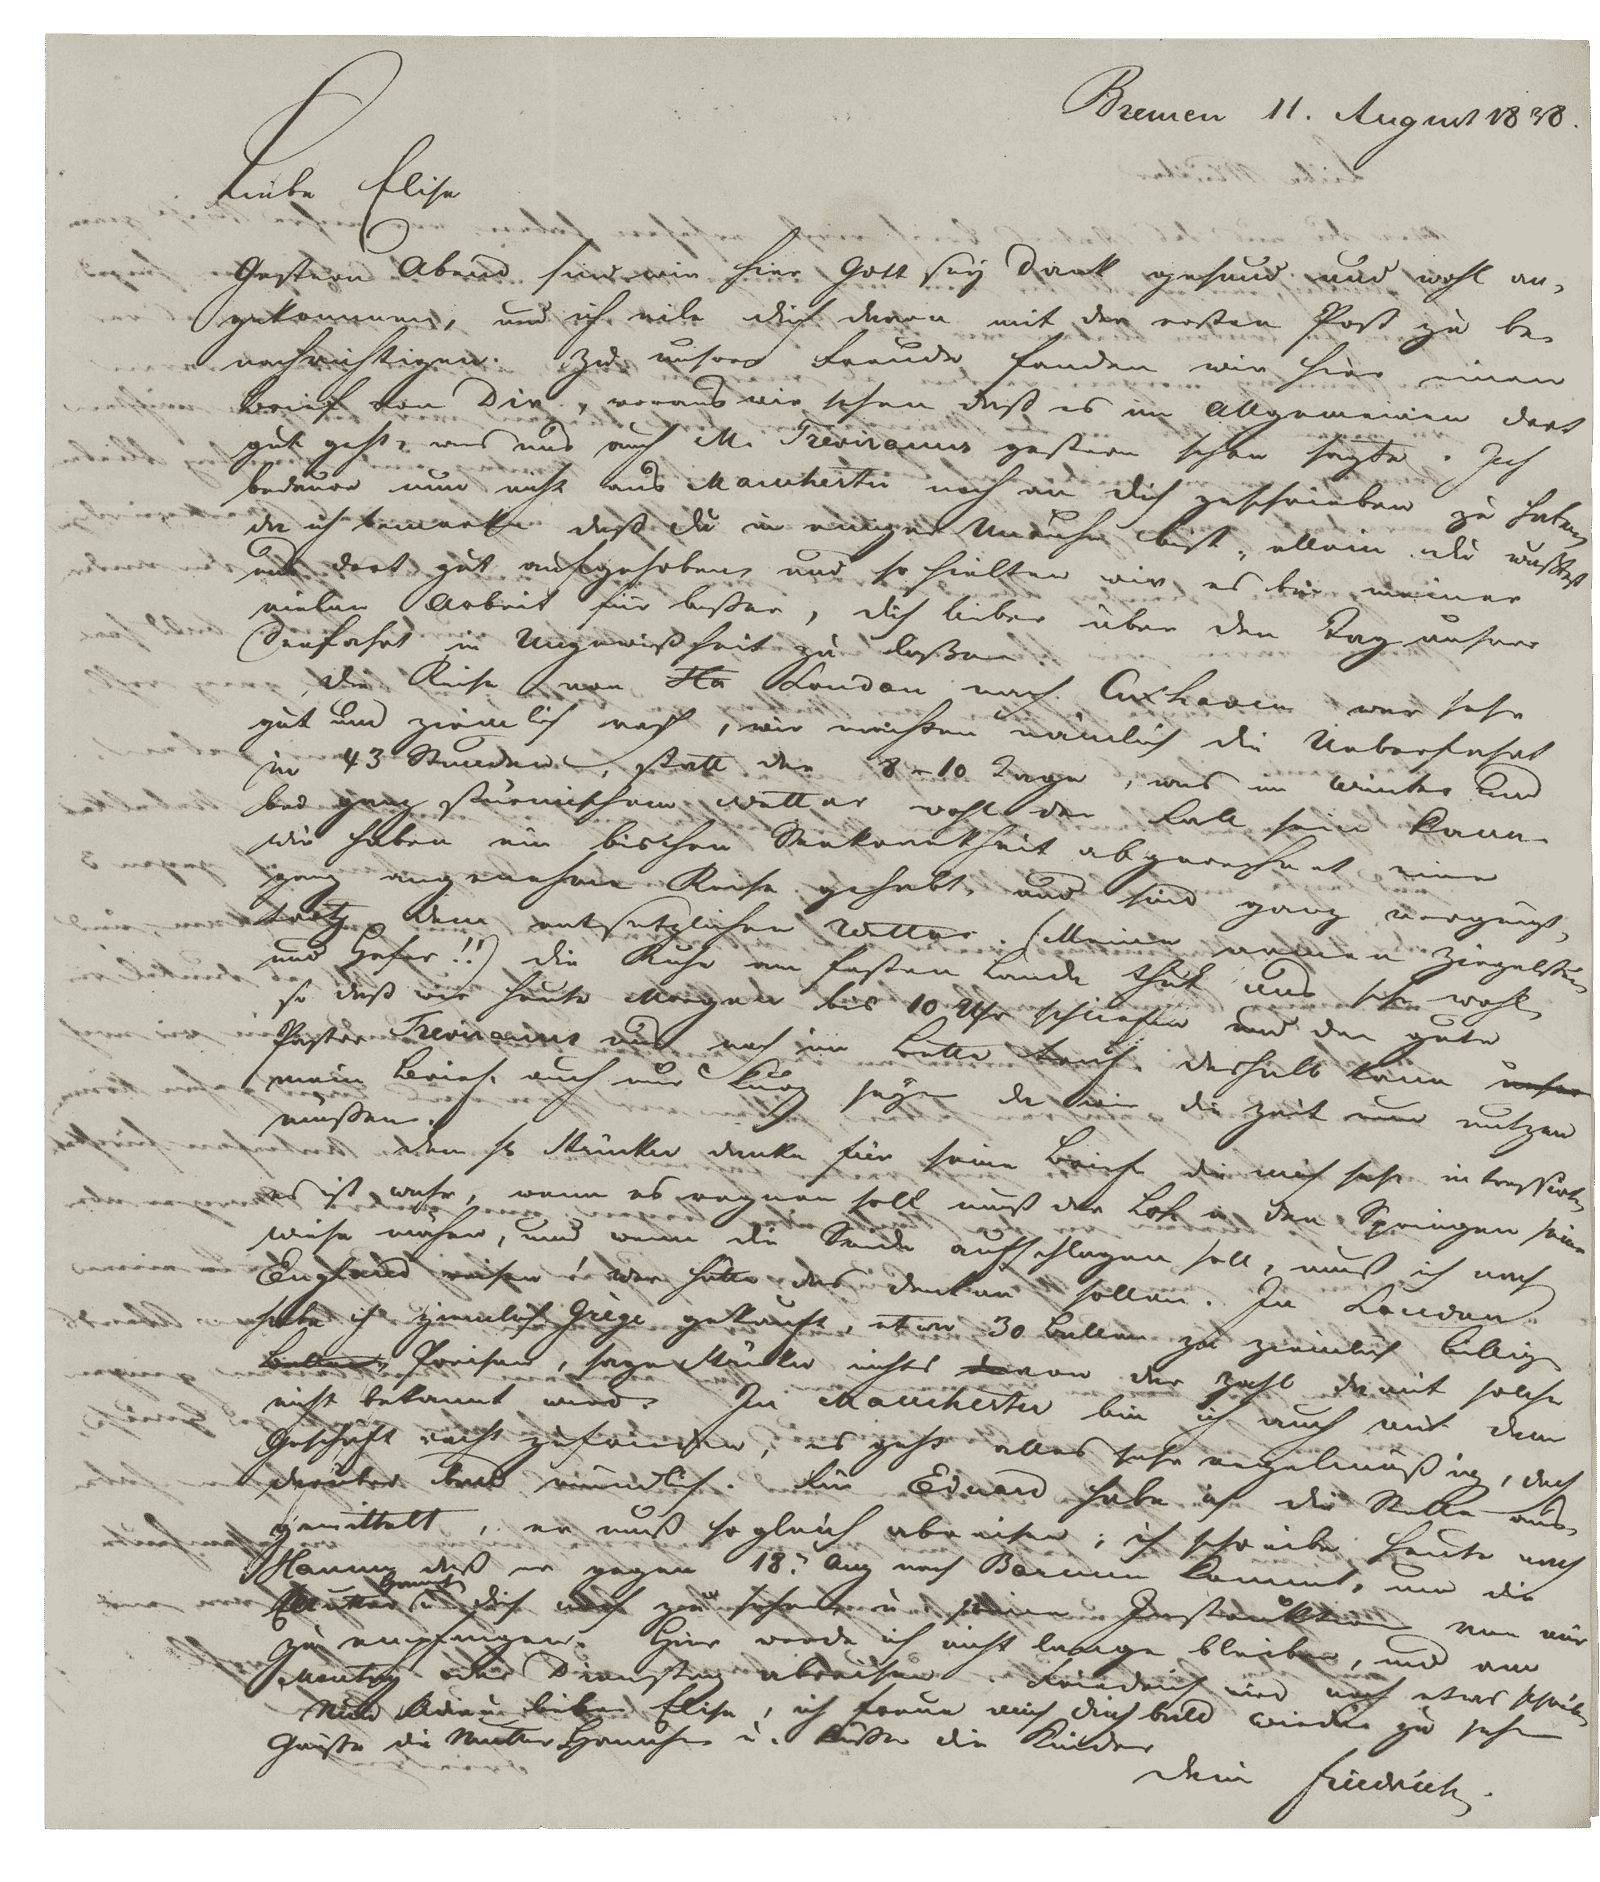 Bremen 11. August 1838.
Liebe Elise
Gestern Abend sind wir hier Gott sey Dank gesund und wohl an-
gekommen, und ich eile dich davon mit der ersten Post zu be-
nachrichtigen. Zu unserer Freude fanden wir hier einen
Brief von Dir, woraus wir sehen daß es im Allgemeinen dort
gut geht, was uns auch M. Treviranus gestern schon sagte. Ich
bedaure nun nicht aus Manchester noch an dich geschrieben zu haben
da ich bemerke daß du in einiger Unruhe bist, allein du wußtest
uns dort gut aufgehoben, und so hielten wir es bei meiner
vielen Arbeit für besser, dich lieber über den Tag unserer
Seefahrt in Ungewißheit zu laßen.
Die Reise von Ha London nach Cuxhaven war sehr
gut und ziemlich rasch, wir machten nämlich die Ueberfahrt
in 43 Stunden, statt der 8-10 Tage, was im Winter und
bei ganz stürmischem Wetter wohl der Fall sein kann.
Wir haben ein bischen Seekrankheit abgerechnet eine
ganz angenehme Reise gehabt, und sind ganz vergnügt,
trotz dem entsetzlichen Wetter. (Meine armen Ziegelsteine
und Hafer!!) die Ruhe am festen Lande thut uns sehr wohl
so daß wir heute Morgen bis 10 Uhr schliefen und der gute
Pastor Treviranus uns noch im Bette traf. deshalb kann unser
mein Brief auch nur kurz seyn da wir die Zeit nun nutzen
müßen.
Dem Hr Stüncker danke für seine Briefe die mich sehr intressirten
es ist wahr, wenn es regnen soll muß der in den Springen seine
Wiese mähen, und wenn die Seide aufschlagen soll, muß ich nach
England reisen! wer hätte das denken sollen. In London
habe ich ziemlich Grège gekauft, etwa 30 Ballen zu ziemlich billigen
Ballen Preisen, sage Stüncker nichts von der Zahl damit solche
nicht bekannt wird. In Manchester bin ich auch mit dem
Geschäft recht zufrieden, es geht alles sehr regelmäßig, doch
darüber bald mündlich. Für Eduard habe ich die Stelle aus-
gemittelt, er muß sogleich abreisen; ich schreibe heute nach
Hamm daß er gegen 18. Aug nach Barmen kommt, um die
Mutter u dich noch zu sehen u seine Instruktion von mir
zu empfangen. Hier werde ich nicht lange bleiben, und am
Montag oder Dienstag abreisen. Friedrich wird noch etwas schreiben
Nun Adieu liebe Elise, ich freue mich dich bald wieder zu sehen
Grüße die Mutter u. küsse die Kinder
Dein Friedrich.